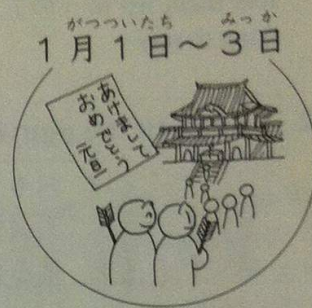 がつついたち みっか
1月1日~3日
あけまして
おめでとう
元旦